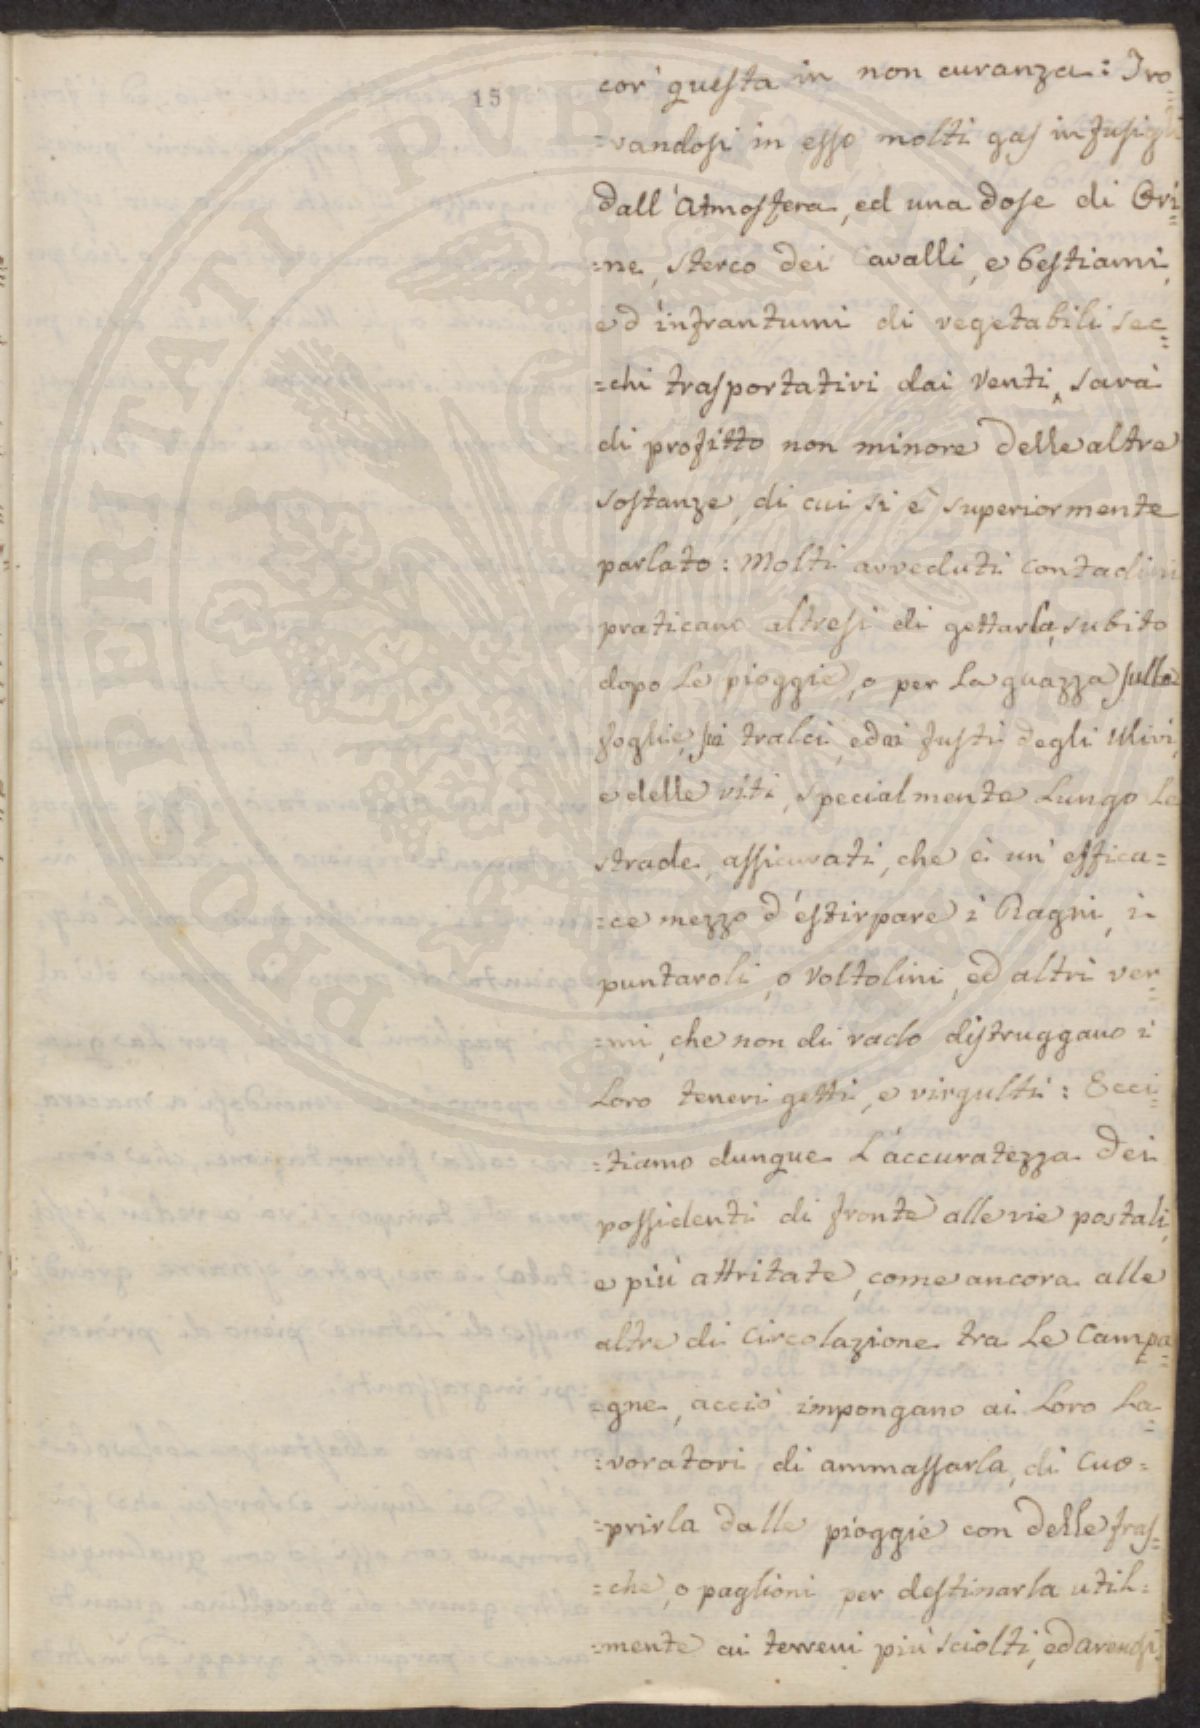 15
cor' questa in non curanza: Tro=
=vandosi in esso molti gas infusigli
dall'Atmosfera, ed una dose di Ori=
=ne, sterco dei Cavalli, e bestiami,
ed infrantumi di vegetabili sec=
=chi trasportativi dai Venti, sarà
di profitto non minore delle altre
sostanze, di cui si è superiormente
parlato: Molti avveduti Contadini
praticano altresi di gettarla, subito
dopo le pioggie, o per la guazza sulle
foglie, sui tralci, ed ai fusti degli Ulivi,
e delle viti, specialmente lungo le
strade, assicurati, che è un' effica=
=ce mezzo d'estirpare i Ragni, i
puntaroli, o Voltolini, ed altri ver=
=mi, che non di rado distruggano i
loro teneri getti, e virgulti: Ecci=
=tiamo dunque l'accuratezza dei
possidenti di fronte alle vie postali,
e più attritate, come ancora alle
altre di Circolazione tra le Campa=
=gne, acciò impongano ai loro la=
=voratori di ammassarla, di Cuo=
=prirla dalle pioggie con delle fras=
=che, o paglioni per destinarla util=
=mente ai terreni più sciolti, ed arenosi,
PROSPERITATI PUBLICAE